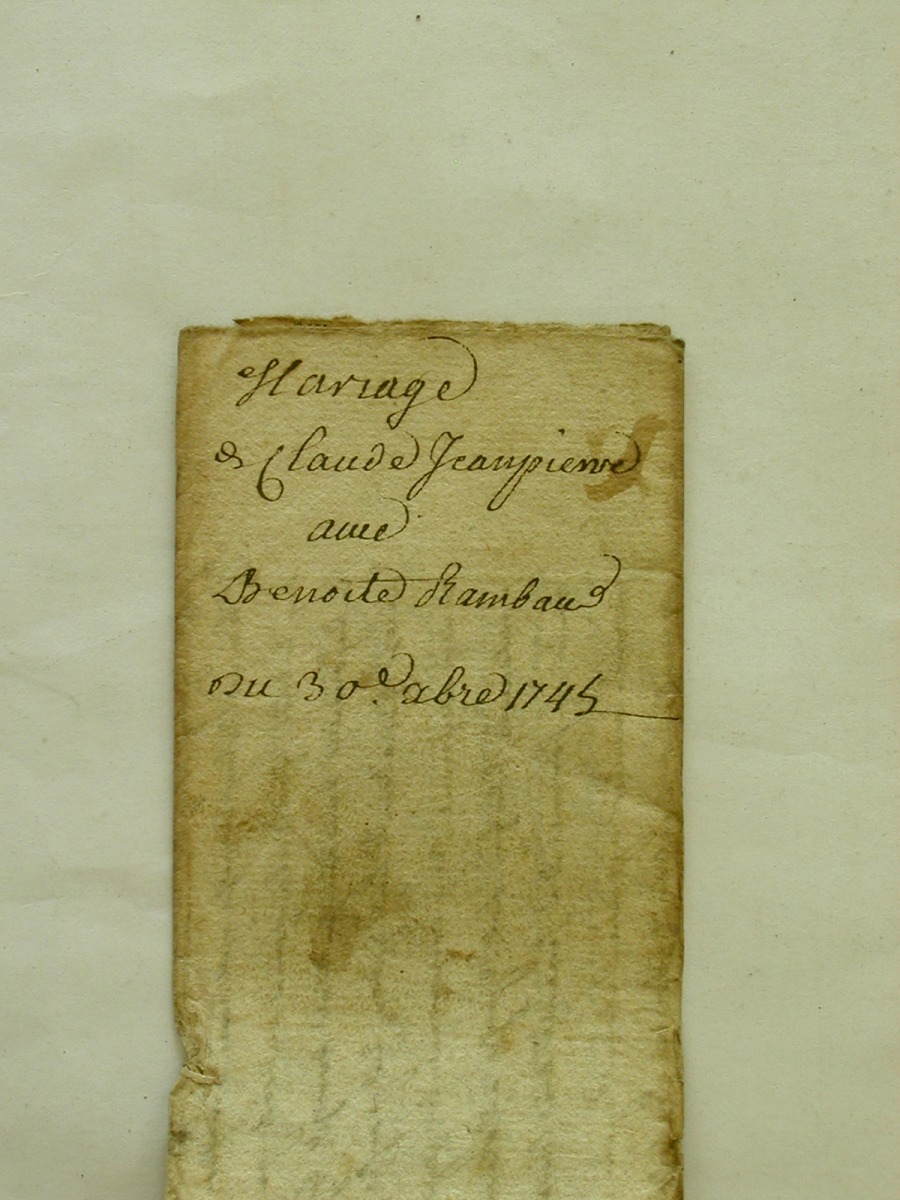 Mariage
de Claude Jeanpierre
avec
Benoite Rambaud
Du 30e. abre 1745